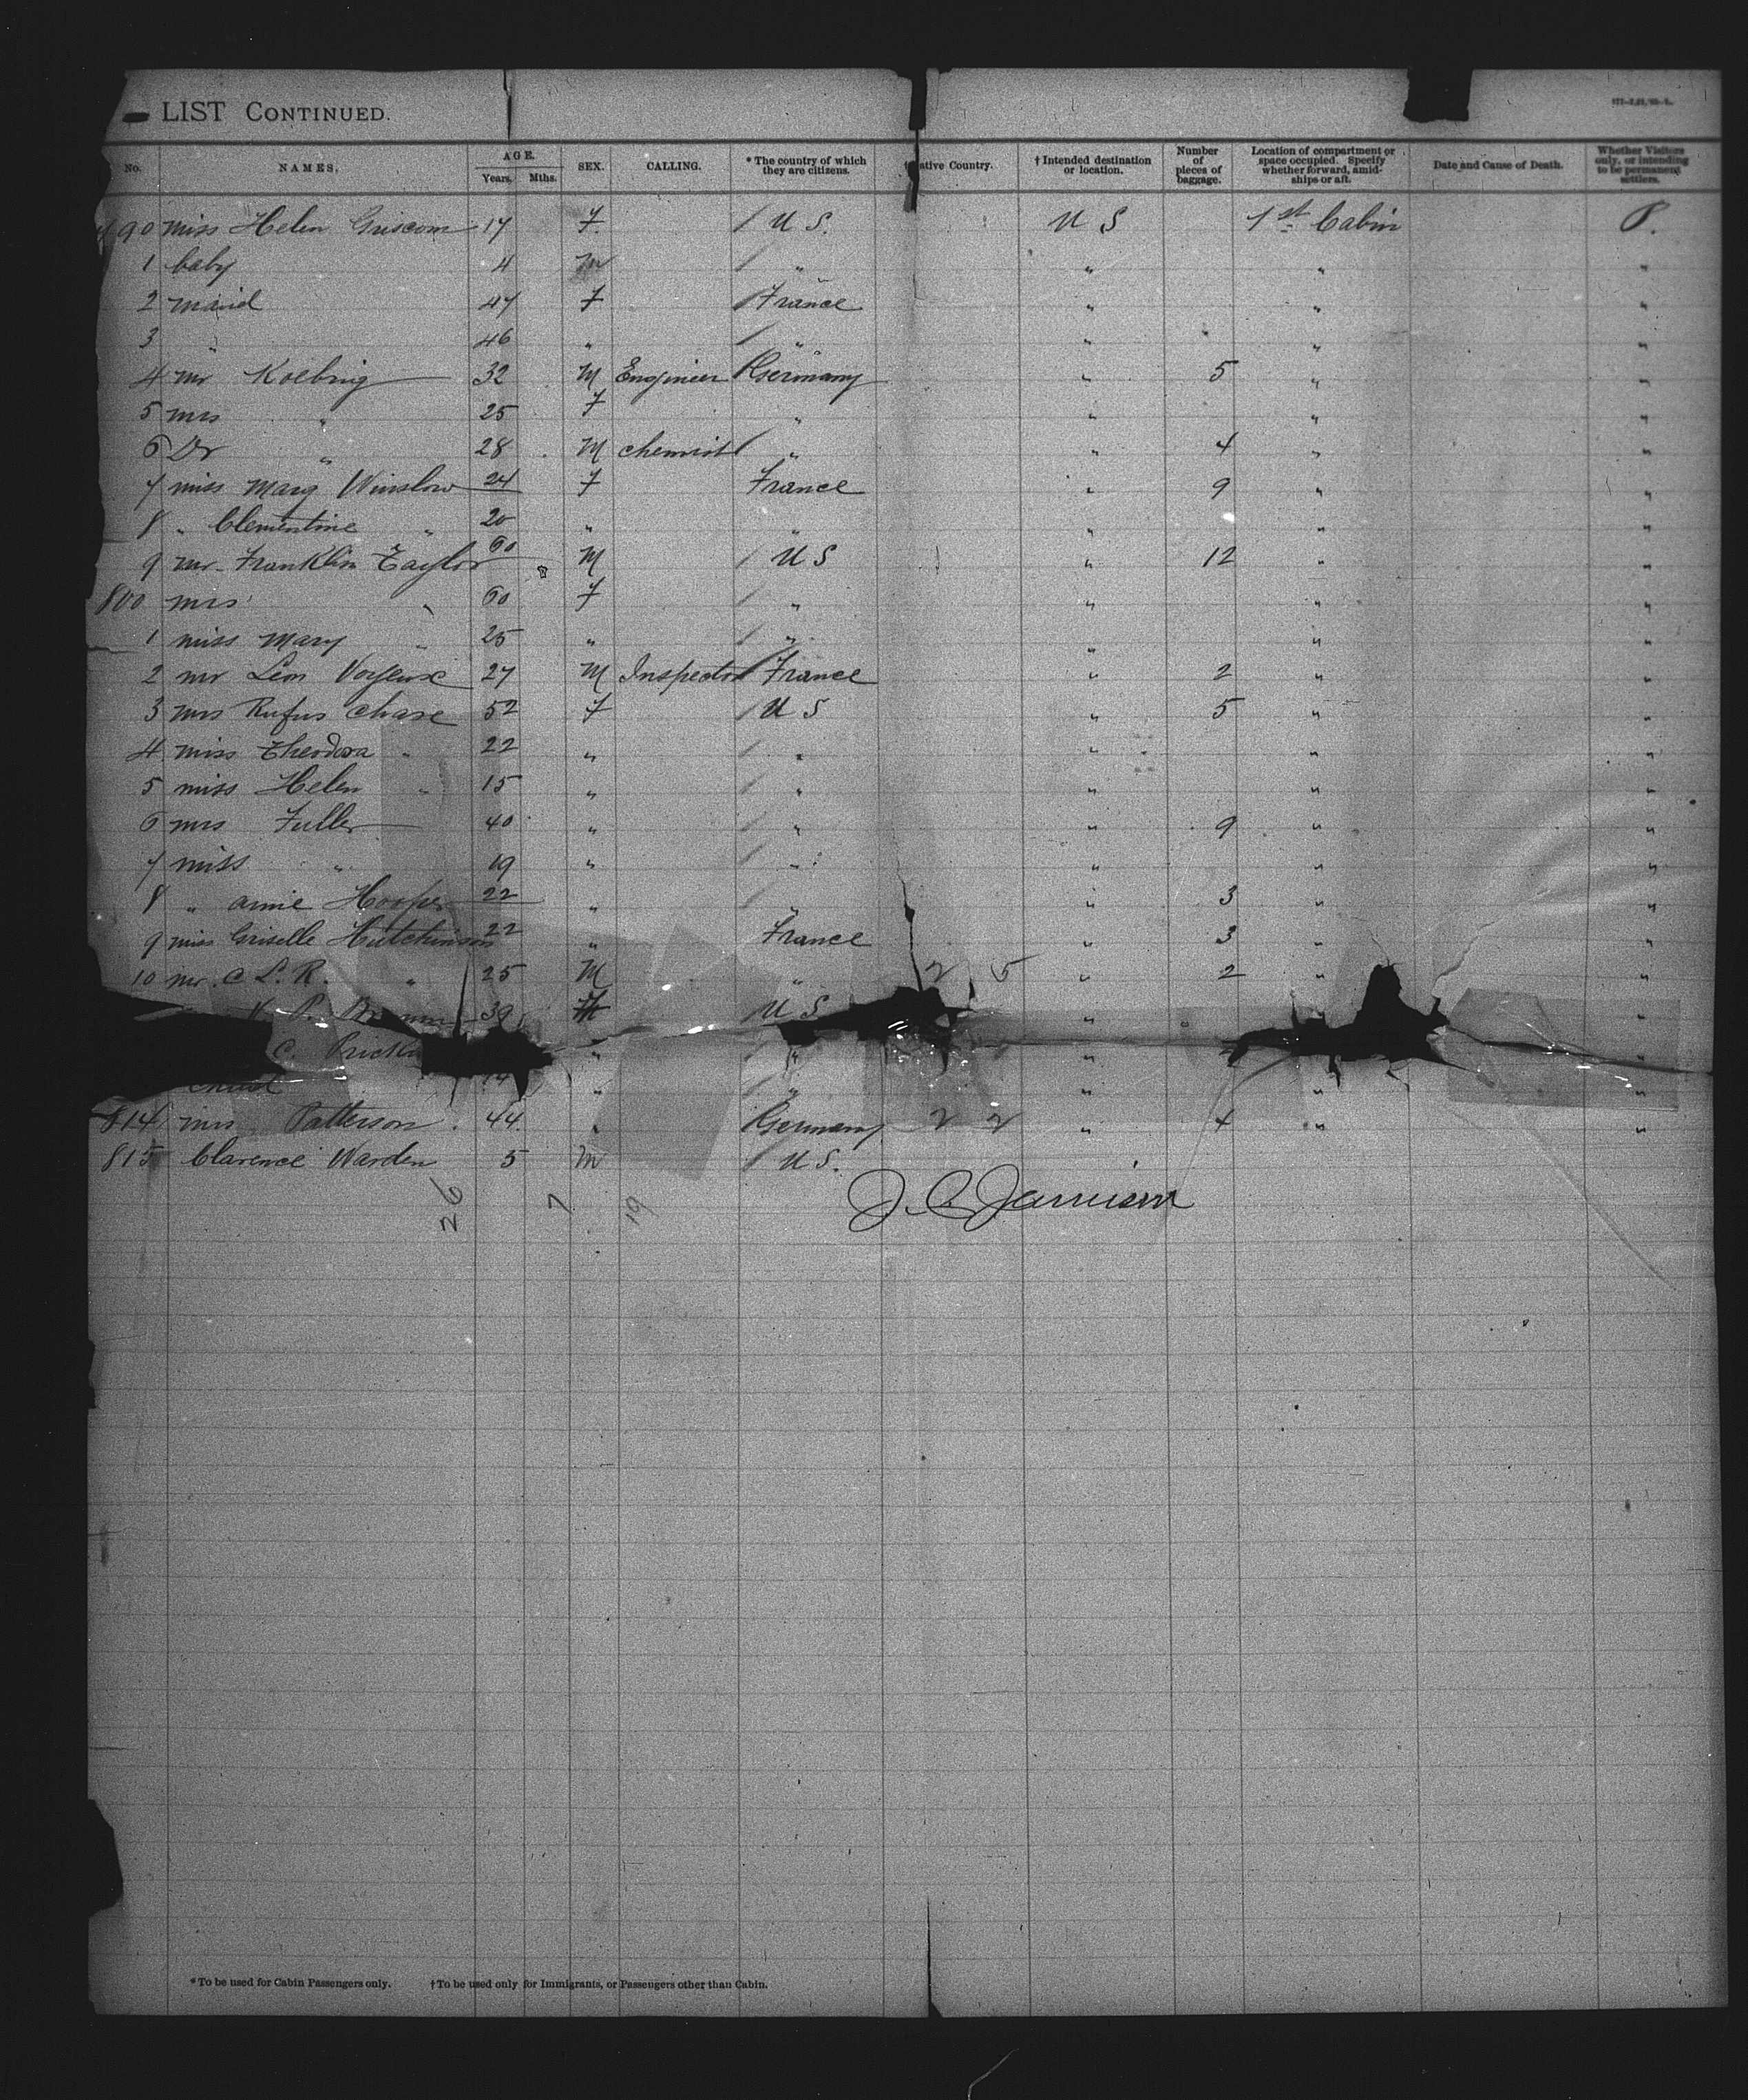 LIST CONTINUED.
No. NAMES. AGE. Years. Mths. SEX. CALLING. * The country of which they are citizens. ative Country. † Intended destination or location. Number of pieces of baggage. Location of compartment or space occupied. Specify whether forward, amid-ships or aft. Date and Cause of Death. Whether Visitors only, or intending to be permanent settlers.
90 Miss Helen Griscom 17 F. / U S. U S 1st Cabin P.
1 baby 4 M / " " " "
2 maid 47 F / France " " "
3 " 46 " / " " " "
4 Mr Koebnig 32 M Engineer / Germany " 5 " "
5 Mrs " 25 F " " " "
6 Dr " 28 M chemist / " " 4 " "
7 Miss Mary Winslow 24 F France " 9 " "
8 " Clementine " 20 " " " " "
9 Mr Franklin Taylor 60 M / U S " 12 " "
800 Mrs " 60 F / " " " "
1 Miss Mary " 25 " / " " " "
2 Mr Leon 27 M Inspector / France " 2 " "
3 Mrs Rufus Chase 52 F / U S " 5 " "
4 Miss Theodora " 22 " / " " " "
5 Miss Helen " 15 " / " " " "
6 Mrs Fuller 40 " / " " 9 " "
7 Miss " 19 " / " " " "
8 " Annie Hooper 22 " / " " 3 " "
9 Miss Griselle Hutchinson 22 " France " 3 " "
10 Mr. C L. R. " 25 M " 2 5 " 2 " "
P. 39 U S " " "
C. " " " " "
child " " " "
814 Mrs Patterson 44 " Germany 2 2 " 4 " "
815 Clarence Warden 5 M / U S.
26 7 19
* To be used for Cabin Passengers only. † To be used only for Immigrants, or Passengers other than Cabin.